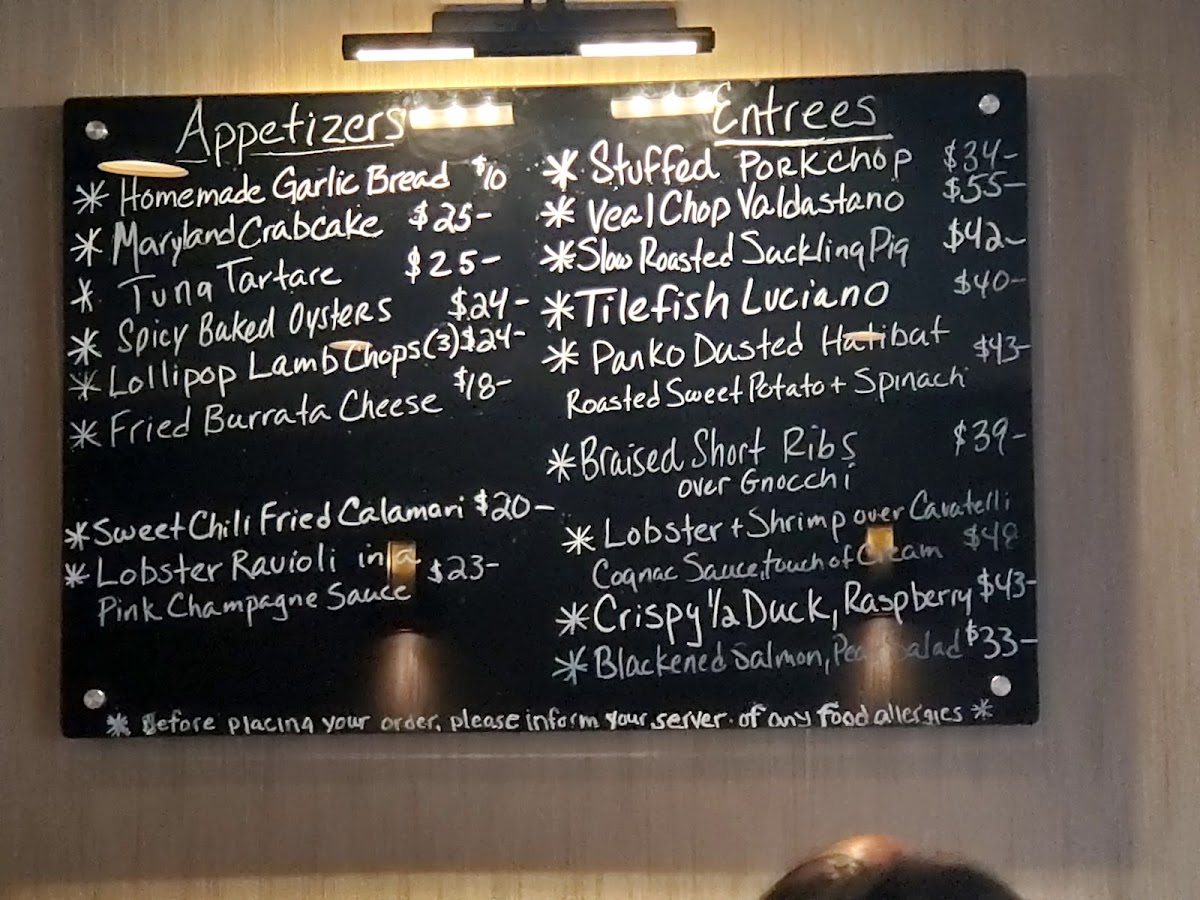 Appetizers
* Homemade Garlic Bread $10
* Maryland Crabcake $25-
* Tuna Tartare $25-
* Spicy Baked Oysters $24-
* Lollipop Lamb Chops (3) $24-
* Fried Burrata Cheese $18-
* Sweet Chili Fried Calamari $20-
* Lobster Ravioli in a $23-
Pink Champagne Sauce
Entrees
* Stuffed Porkchop $34-
* Veal Chop Valdastano $55-
* Slow Roasted Suckling Pig $42-
* Tilefish Luciano $40-
* Panko Dusted Halibat $43-
Roasted Sweet Potato + Spinach
* Braised Short Ribs $39-
over Gnocchi
* Lobster + Shrimp over Cavatelli
Cognac Sauce, touch of Cream
* Crispy 1/2 Duck, Raspberry $43-
* Blackened Salmon, Salad $33-
* Before placing your order, please inform your server of any food allergies *